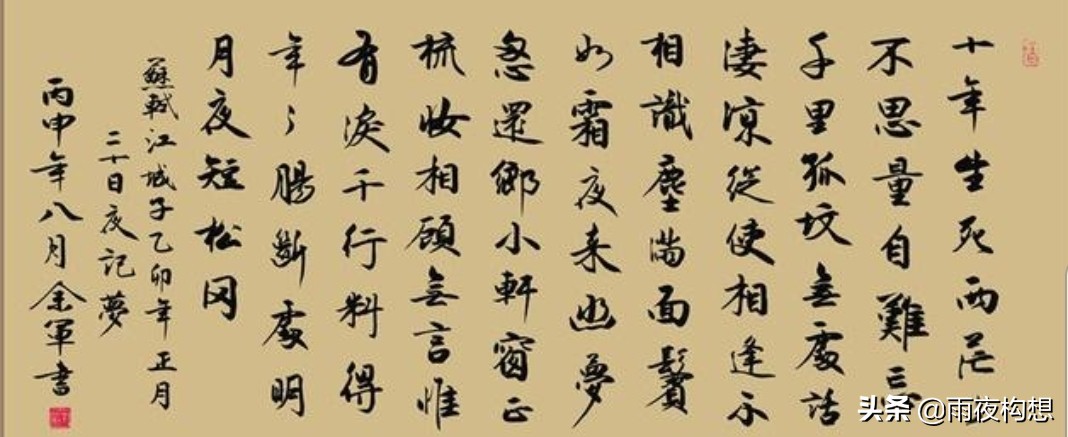 十年生死两茫々
不思量自難忘
千里孤坟無處話
凄凉從使相逢不
相識塵满面鬢
如霜夜来幽夢
忽還鄉小軒窗正
梳妆相顧無言惟
有淚千行料得
年々腸斷處明
月夜短松冈
蘇軾江城子乙卯年正月
二十日夜記夢
丙申年八月余軍書
头条 @雨夜构想